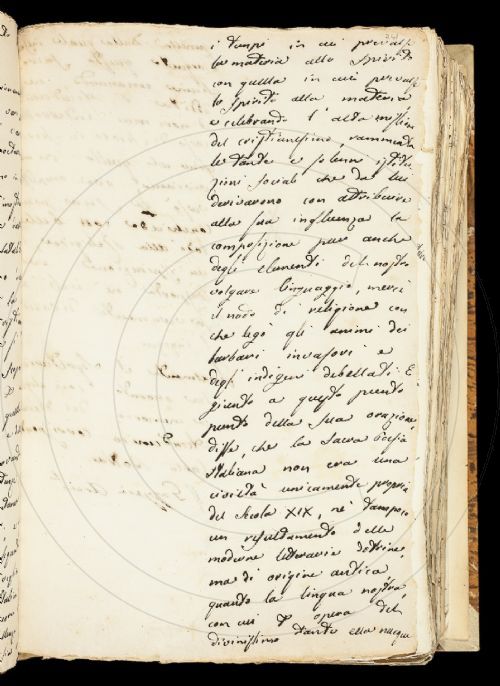 i tempi in cui prevalse
la materia allo spirito
con quella in cui prevalse
lo spirito alla materia
e celebrando l' alta missione
del cristianesimo, rammentò
le tante e solenni istitu
zioni sociali che da lui
derivarono con attribuire
alla sua influenza la
composizione pure anche
degli elementi del nostro
volgare linguaggio, mercè
il nodo di religione con
che legò gli animi dei
barbari invasori e
degli indigeni debellati. E
giunto a questo punto
punto della sua orazione
disse, che la Sacra Poesia
Italiana non era una
civiltà unicamente propria
del Secolo XIX, nè tampoco
un risultamento delle
moderne letterarie dottrine,
ma di origine antica
quanto la lingua nostra,
con cui opera del
divinissimo Dante ella nacque